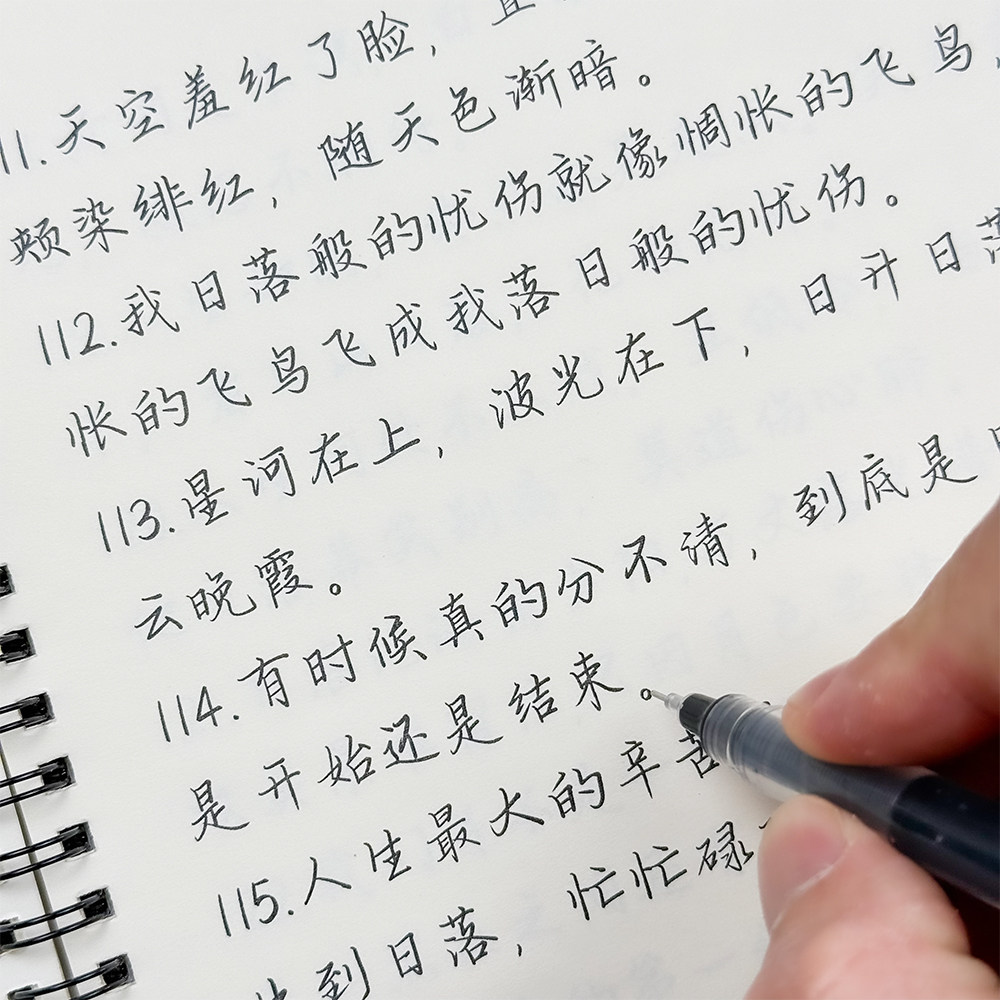 11.天空羞红了脸，
颊染绯红，随天色渐暗。
112.我日落般的忧伤就像惆怅的飞鸟，
怅的飞鸟飞成我落日般的忧伤。
113.星河在上，波光在下，日升日落
云晚霞。
114.有时候真的分不清，到底是
是开始还是结束。
115.人生最大的辛苦
到日落，忙忙碌